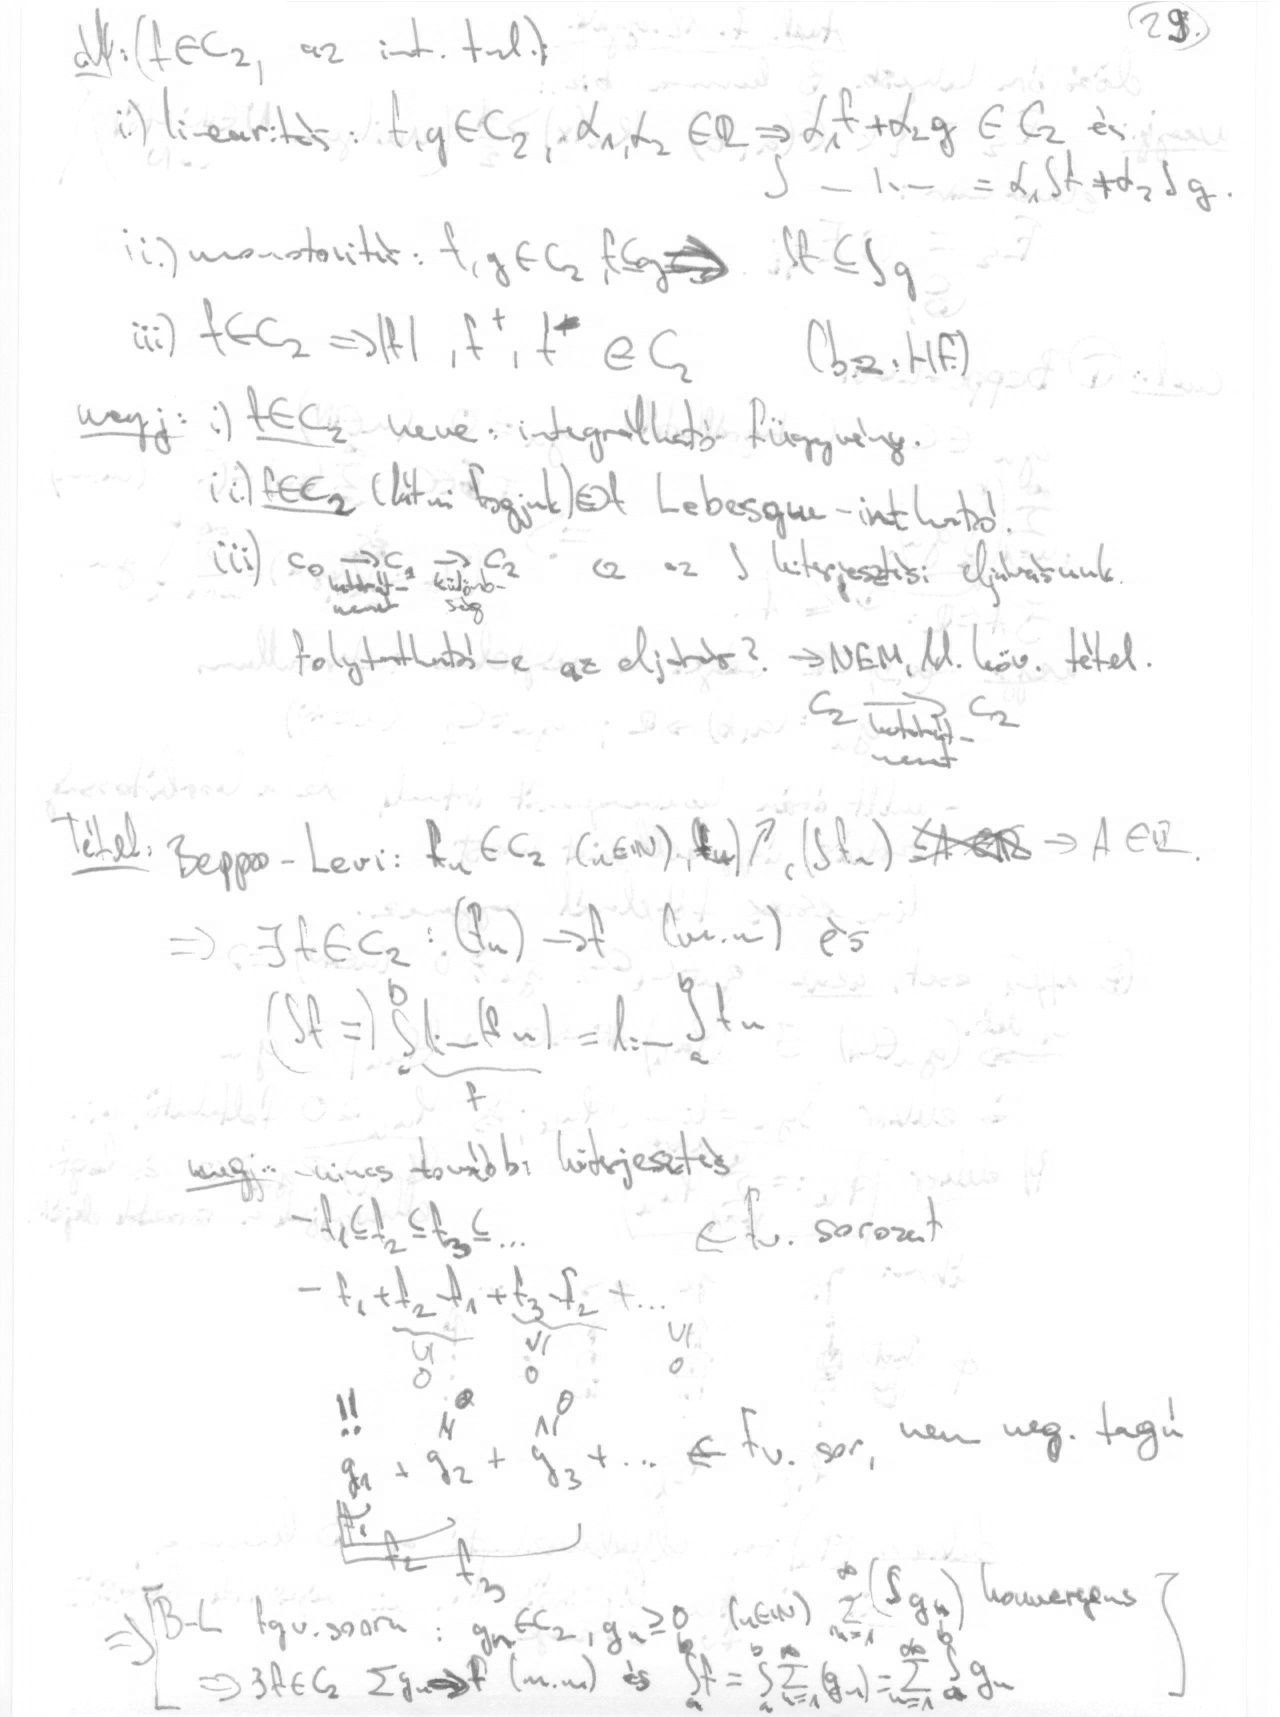 29.
áll: (f∈C₂, az int. tul.):
i.) linearitás: f, g ∈ C₂, α₁, α₂ ∈ ℝ ⇒ α₁f + α₂g ∈ C₂ és
∫ – 〃 – = α₁∫f + α₂∫g.
ii.) monotonitás: f, g ∈ C₂ f ≤ g ⇒ ∫f ≤ ∫g
iii) f∈C₂ ⇒ |f|, f⁺, f⁻ ∈ C₂ (biz: HF.)
megj: i.) f∈C₂ neve: integrálható függvény.
ii.) f∈C₂ (látni fogjuk) ⇔ f Lebesgue-intható.
iii) C₀ → C₁ → C₂ ez az ∫ kiterjesztési eljárásunk.
határátmenet különbség
folytatható-e az eljárás? → NEM, ld. köv. tétel.
C₂ → C₂
határátmenet
Tétel: Beppo-Levi: fₙ ∈ C₂ (n∈ℕ), (fₙ)↗, (∫fₙ) → A ∈ ℝ.
⇒ ∃ f∈C₂ : (fₙ) → f (m.m) és
(∫f =) ∫ₐᵇ lim(fₙ) = lim ∫ₐᵇ fₙ
f
megj: - nincs további kiterjesztés
- f₁ ≤ f₂ ≤ f₃ ≤ ... ← fv. sorozat
- f₁ + f₂ - f₁ + f₃ - f₂ + ...
VI VI VI
0 0 0
!! 0 0
g₁ + g₂ + g₃ + ... ← fv. sor, nem neg. tagú
f₁
f₂
f₃
⇒ [B-L fgv. sorra: gₙ ∈ C₂, gₙ ≥ 0 (n∈ℕ) ∑ₙ₌₁^∞ (∫gₙ) konvergens
⇒ ∃ f∈C₂ ∑gₙ → f (m.m) és ∫ₐᵇ f = ∫ₐᵇ ∑ₙ₌₁^∞ (gₙ) = ∑ₙ₌₁^∞ ∫ₐᵇ gₙ ]